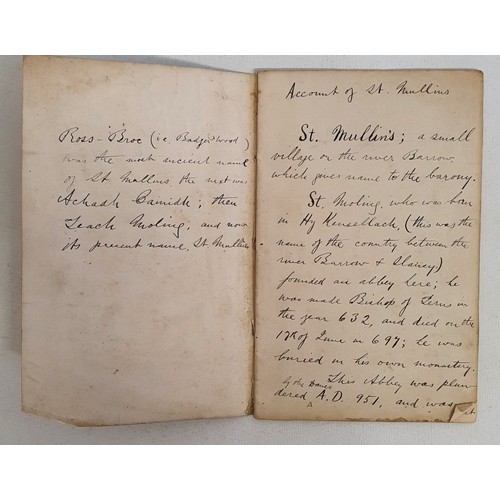 Ross-Broc (i.e. Badger wood)
was the most ancient name
of St Mullins, the next was
Achadh Cainidh; then
Teach Moling, and now
its present name, St Mullins
Account of St. Mullins
St. Mullin's; a small
village on the river Barrow,
which gives name to the barony.
St. Moling, who was born
in Hy Kensellach, (this was the
name of the country between the
river Barrow & Slaney)
founded an abbey here; he
was made Bishop of Ferns in
the year 632, and died on the
17th of June in 697; he was
buried in his own monastery.
by the Danes This Abbey was plun-
dered A.D. 951, and was